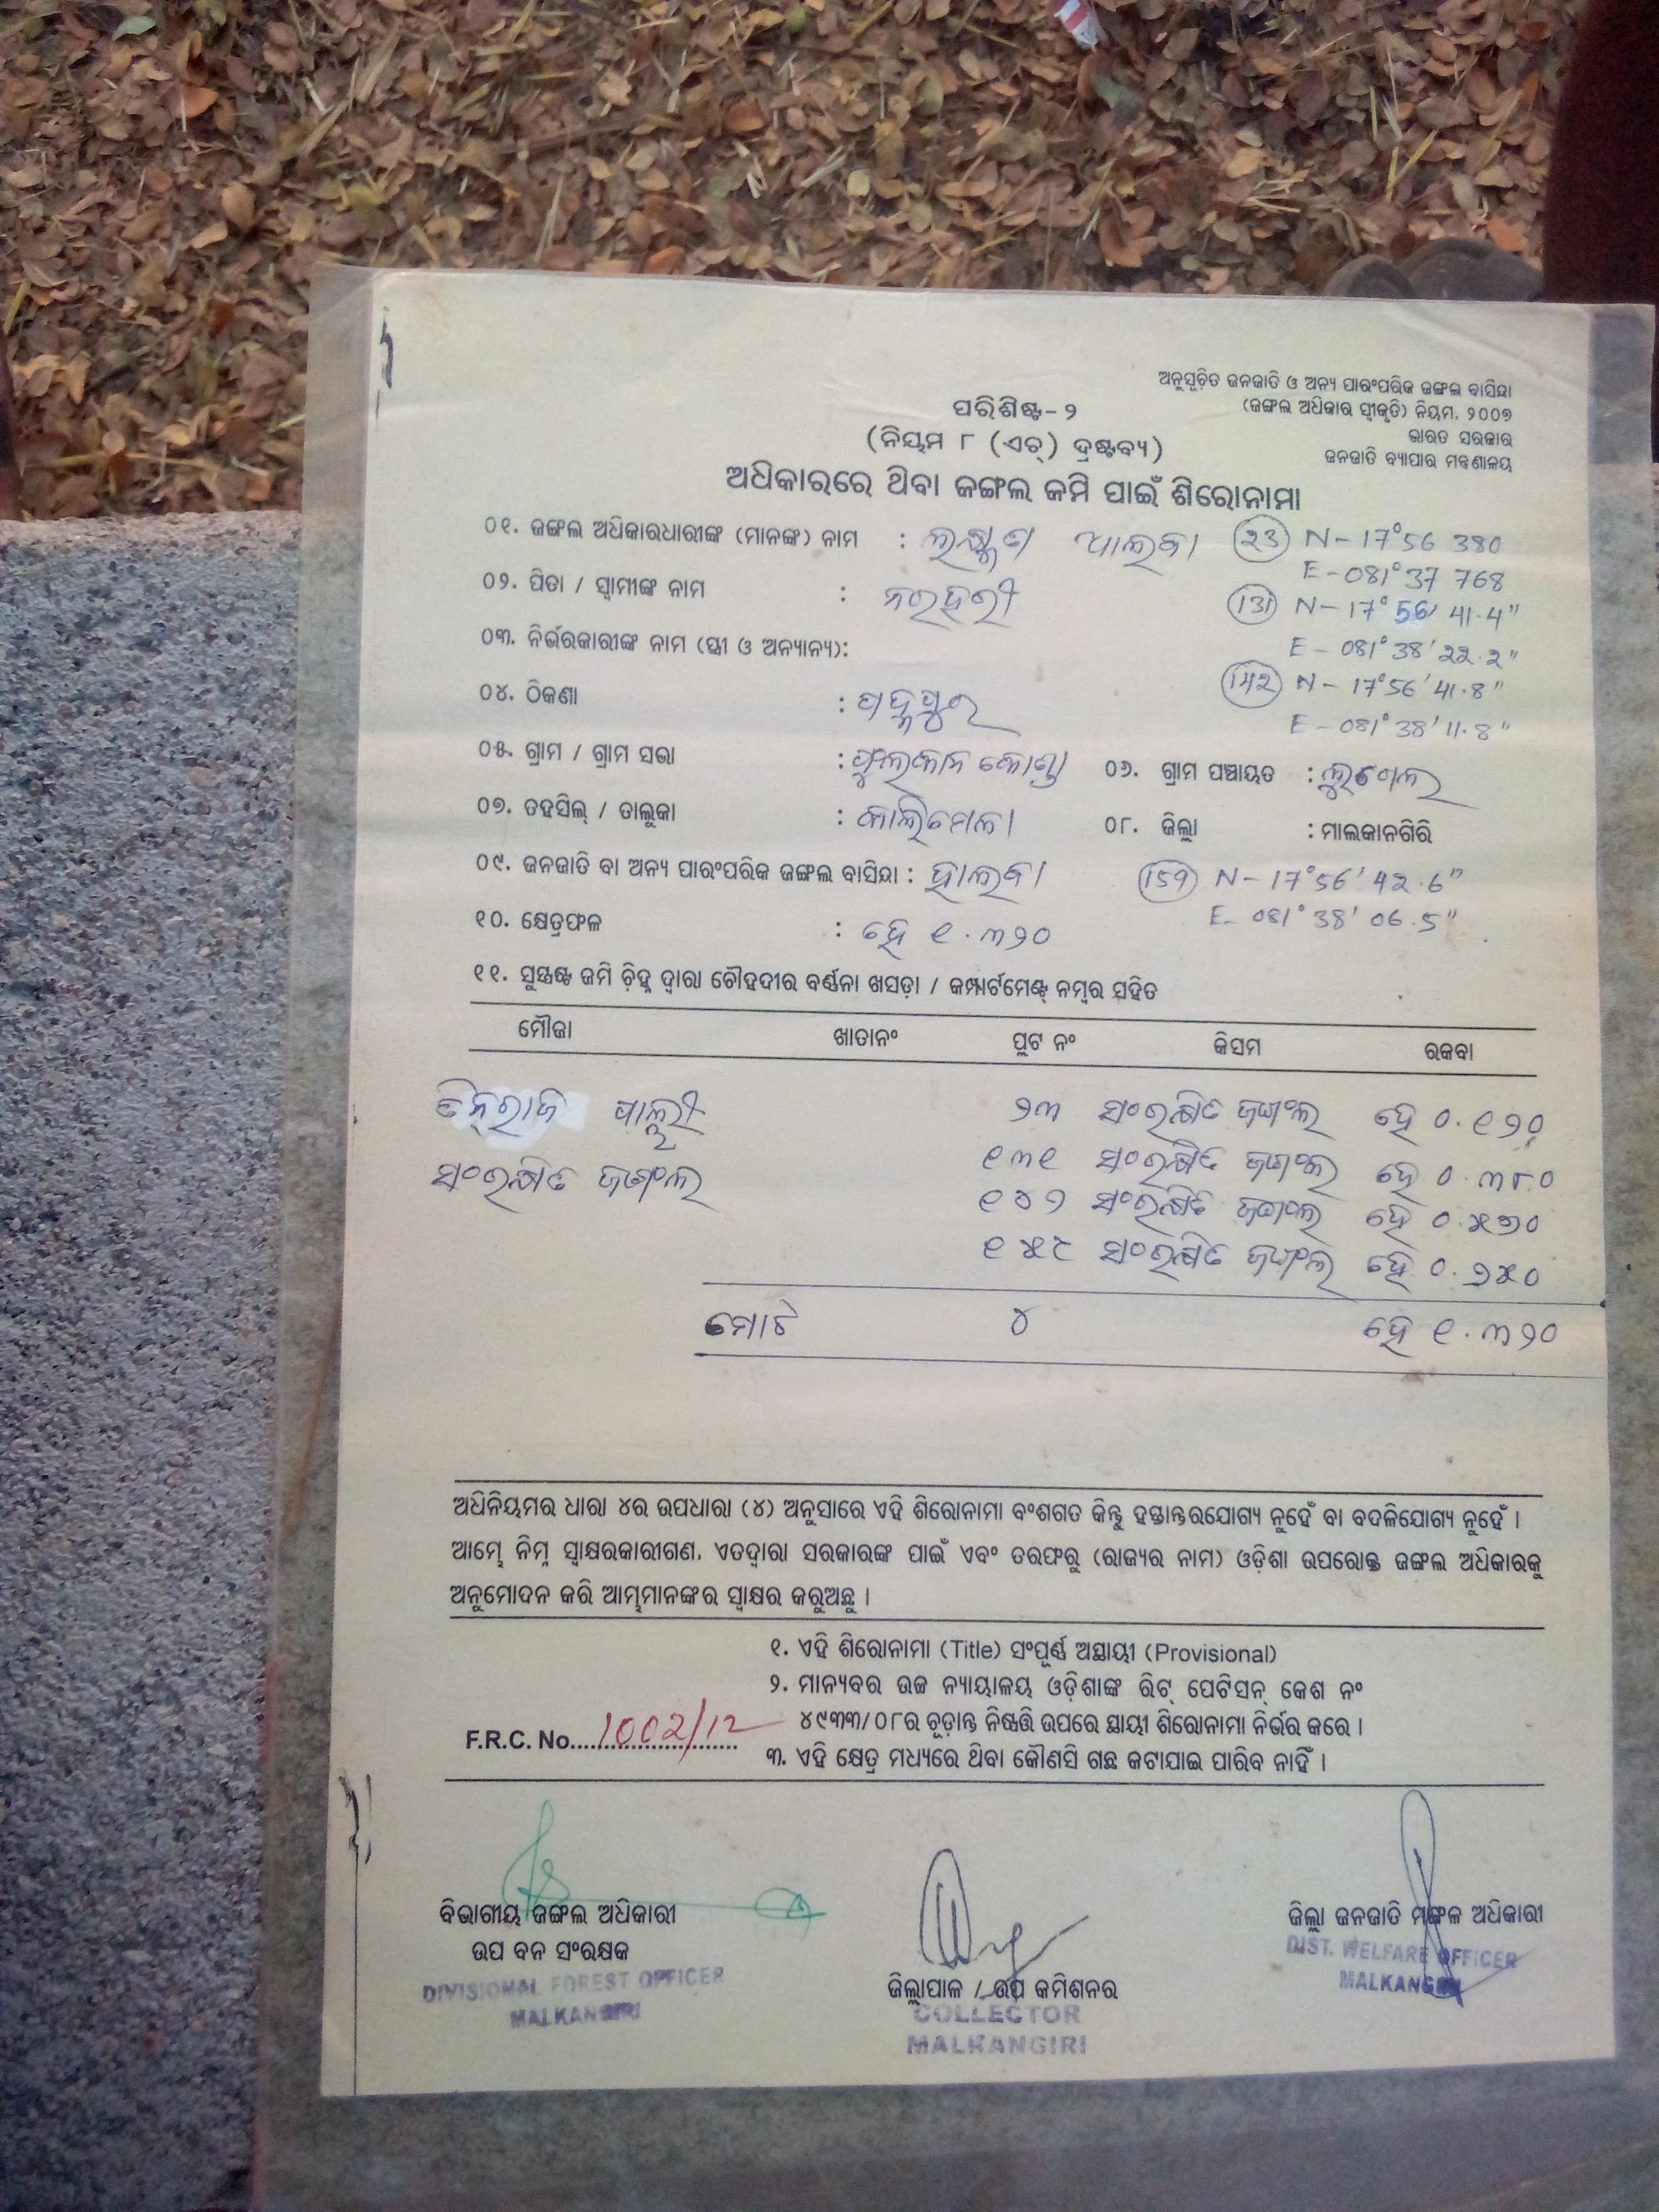 ଅନୁସୂଚିତ ଜନଜାତି ଓ ଅନ୍ୟ ପାରଂପରିକ ଜଙ୍ଗଲ ବାସିନ୍ଦା
(ଜଙ୍ଗଲ ଅଧିକାର ସ୍ୱୀକୃତି) ନିୟମ, ୨୦୦୭
ଭାରତ ସରକାର
ଜନଜାତି ବ୍ୟାପାର ମନ୍ତ୍ରଣାଳୟ
ପରିଶିଷ୍ଟ-୨
(ନିୟମ ୮ (ଏଚ୍) ଦ୍ରଷ୍ଟବ୍ୟ)
ଅଧିକାରରେ ଥିବା ଜଙ୍ଗଲ ଜମି ପାଇଁ ଶିରୋନାମା
୦୧. ଜଙ୍ଗଲ ଅଧିକାରଧାରୀଙ୍କ (ମାନଙ୍କ) ନାମ : ଲକ୍ଷ୍ମଣ ହାଲବା (23) N-17°56 380
E-081°37 768
୦୨. ପିତା / ସ୍ୱାମୀଙ୍କ ନାମ : ନରହରୀ (131) N-17°56' 41.4"
୦୩. ନିର୍ଭରକାରୀଙ୍କ ନାମ (ସ୍ତ୍ରୀ ଓ ଅନ୍ୟାନ୍ୟ): E-081°38'22.2"
୦୪. ଠିକଣା : ପଦ୍ମପୁର (142) N-17°56'41.8"
E-081°38'11.8"
୦୫. ଗ୍ରାମ / ଗ୍ରାମ ସଭା : ୦୬. ଗ୍ରାମ ପଞ୍ଚାୟତ :
୦୭. ତହସିଲ୍ / ତାଲୁକା : କାଲିମେଳା ୦୮. ଜିଲ୍ଲା : ମାଲକାନଗିରି
୦୯. ଜନଜାତି ବା ଅନ୍ୟ ପାରଂପରିକ ଜଙ୍ଗଲ ବାସିନ୍ଦା : ହାଲବା (159) N-17°56'42.6"
E-081°38'06.5"
୧୦. କ୍ଷେତ୍ରଫଳ : ହେ ୧.୩୨୦
୧୧. ସୁସ୍ପଷ୍ଟ ଜମି ଚିହ୍ନ ଦ୍ୱାରା ଚୌହଦୀର ବର୍ଣ୍ଣନା ଖସଡ଼ା / କମ୍ପାର୍ଟମେଣ୍ଟ୍ ନମ୍ବର ସହିତ
ମୌଜା ଖାତାନଂ ପ୍ଲଟ ନଂ କିସମ ରକବା
୨୩ ସଂରକ୍ଷିତ ଜଙ୍ଗଲ ହେ ୦.୧୨୦
ସଂରକ୍ଷିତ ଜଙ୍ଗଲ ୧୩୧ ସଂରକ୍ଷିତ ଜଙ୍ଗଲ ହେ ୦.୩୮୦
୧୪୨ ସଂରକ୍ଷିତ ଜଙ୍ଗଲ ହେ ୦.୫୭୦
୧୫୯ ସଂରକ୍ଷିତ ଜଙ୍ଗଲ ହେ ୦.୨୫୦
ମୋଟ ୪ ହେ ୧.୩୨୦
ଅଧିନିୟମର ଧାରା ୪ର ଉପଧାରା (୪) ଅନୁସାରେ ଏହି ଶିରୋନାମା ବଂଶଗତ କିନ୍ତୁ ହସ୍ତାନ୍ତରଯୋଗ୍ୟ ନୁହେଁ ବା ବଦଳିଯୋଗ୍ୟ ନୁହେଁ ।
ଆମ୍ଭେ ନିମ୍ନ ସ୍ୱାକ୍ଷରକାରୀଗଣ, ଏତଦ୍ୱାରା ସରକାରଙ୍କ ପାଇଁ ଏବଂ ତରଫରୁ (ରାଜ୍ୟର ନାମ) ଓଡ଼ିଶା ଉପରୋକ୍ତ ଜଙ୍ଗଲ ଅଧିକାରକୁ
ଅନୁମୋଦନ କରି ଆମ୍ଭମାନଙ୍କର ସ୍ୱାକ୍ଷର କରୁଅଛୁ ।
୧. ଏହି ଶିରୋନାମା (Title) ସଂପୂର୍ଣ୍ଣ ଅସ୍ଥାୟୀ (Provisional)
୨. ମାନ୍ୟବର ଉଚ୍ଚ ନ୍ୟାୟାଳୟ ଓଡ଼ିଶାଙ୍କ ରିଟ୍ ପେଟିସନ୍ କେଶ ନଂ
୪୯୩୩/୦୮ର ଚୂଡ଼ାନ୍ତ ନିଷ୍ପତ୍ତି ଉପରେ ସ୍ଥାୟୀ ଶିରୋନାମା ନିର୍ଭର କରେ ।
F.R.C. No. 1002/12
୩. ଏହି କ୍ଷେତ୍ର ମଧ୍ୟରେ ଥିବା କୌଣସି ଗଛ କଟାଯାଇ ପାରିବ ନାହିଁ ।
ବିଭାଗୀୟ ଜଙ୍ଗଲ ଅଧିକାରୀ
ଉପ ବନ ସଂରକ୍ଷକ
DIVISIONAL FOREST OFFICER
MALKANGIRI
ଜିଲ୍ଲାପାଳ / ଉପ କମିଶନର
COLLECTOR
MALKANGIRI
ଜିଲ୍ଲା ଜନଜାତି ମଙ୍ଗଳ ଅଧିକାରୀ
DIST. WELFARE OFFICER
MALKANGIRI